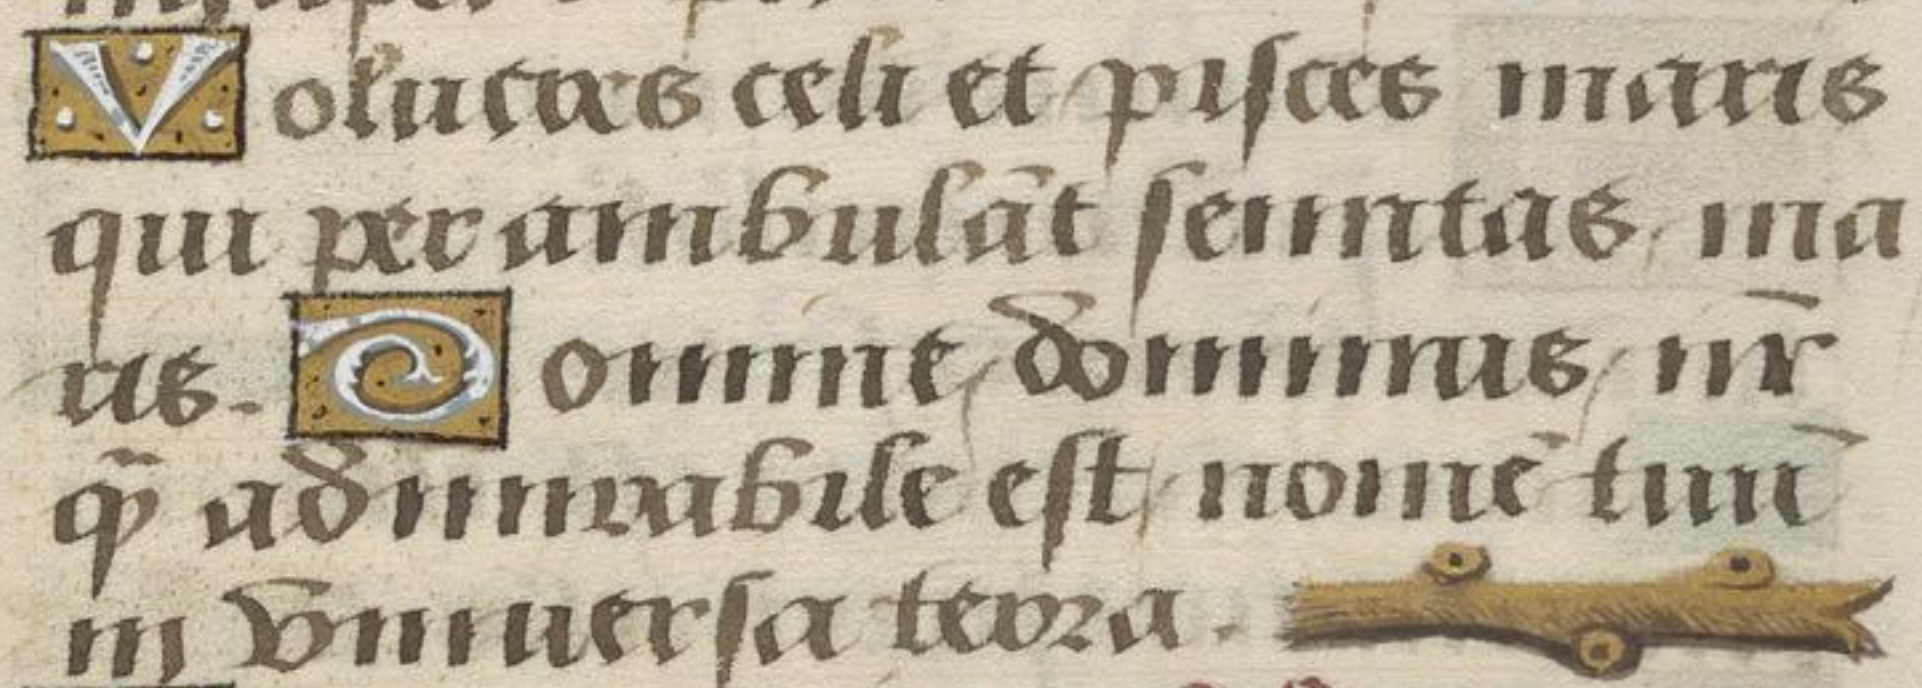 Volucres celi et pisces maris
qui per ambulāt semitas ma
ris. Domine dominus nr̄
qm̄ admirabile est nomē tuū
in vniuersa terra.